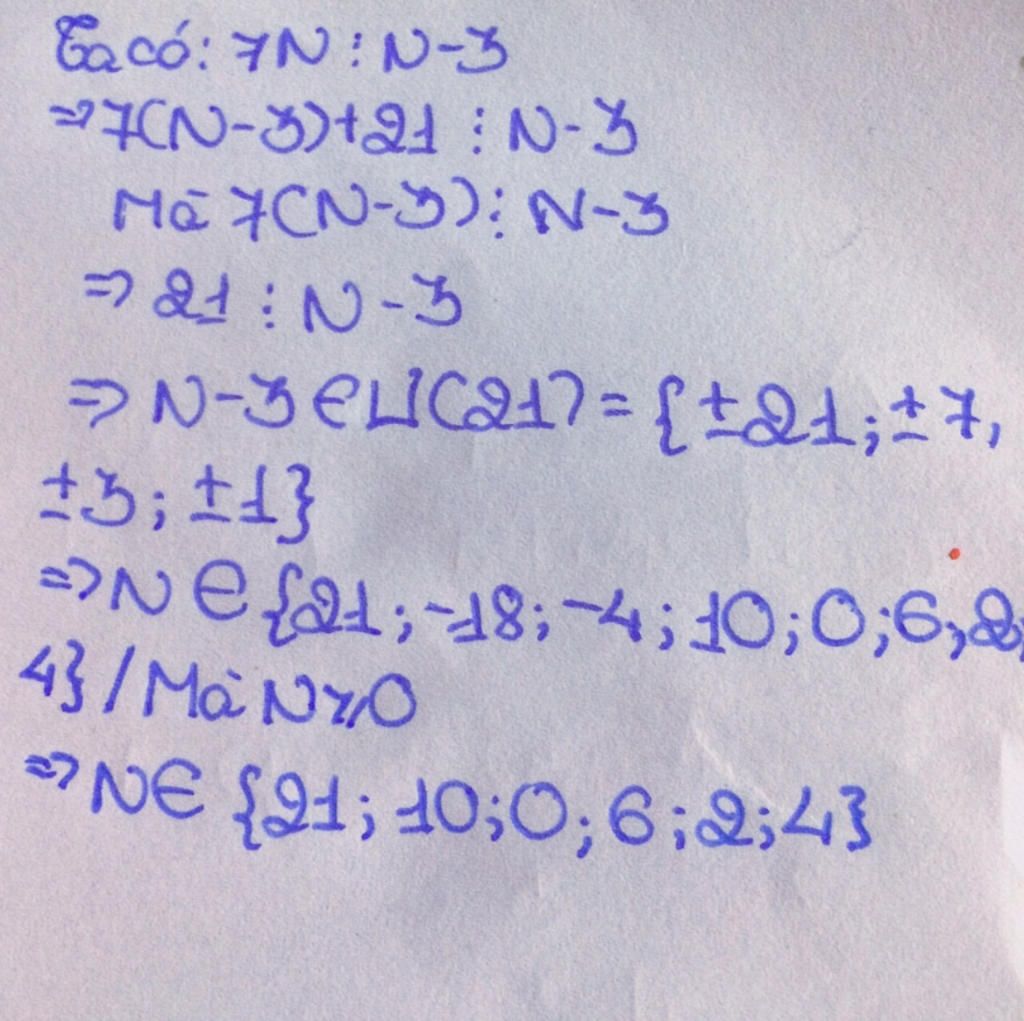 Ta có: 7N ⋮ N-3
=> 7(N-3)+21 ⋮ N-3
Mà 7(N-3) ⋮ N-3
=> 21 ⋮ N-3
=> N-3 ∈ Ư(21) = {±21; ±7,
±3; ±1}
=> N ∈ {21; -18; -4; 10; 0; 6; 2;
4} / Mà N ≥ 0
=> N ∈ {21; 10; 0; 6; 2; 4}